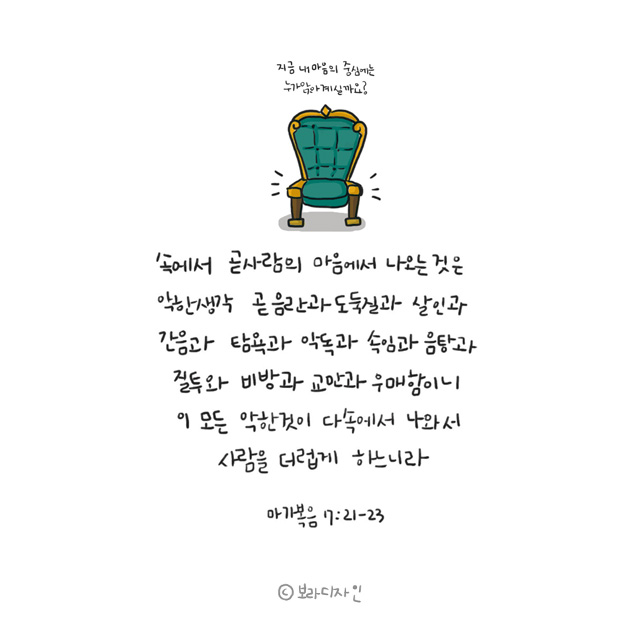 지금 내 마음의 중심에는
누가 앉아 계실까요?
속에서 곧 사람의 마음에서 나오는 것은
악한 생각 곧 음란과 도둑질과 살인과
간음과 탐욕과 악독과 속임과 음탕과
질투와 비방과 교만과 우매함이니
이 모든 악한 것이 다 속에서 나와서
사람을 더럽게 하느니라
마가복음 7:21-23
© 보라디자인